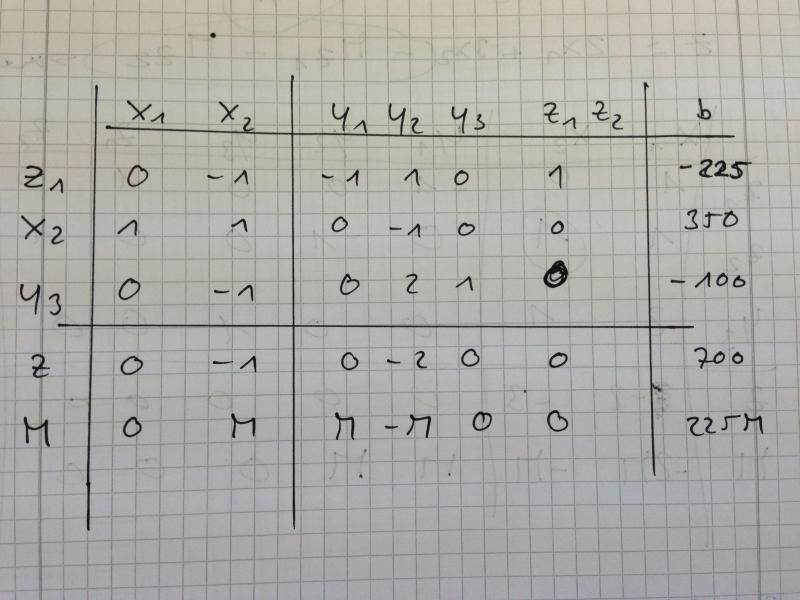 x1 x2 y1 y2 y3 z1 z2 b
z1 0 -1 -1 1 0 1 -225
x2 1 1 0 -1 0 0 350
y3 0 -1 0 2 1 0 -100
z 0 -1 0 -2 0 0 700
M 0 M M -M 0 0 225M